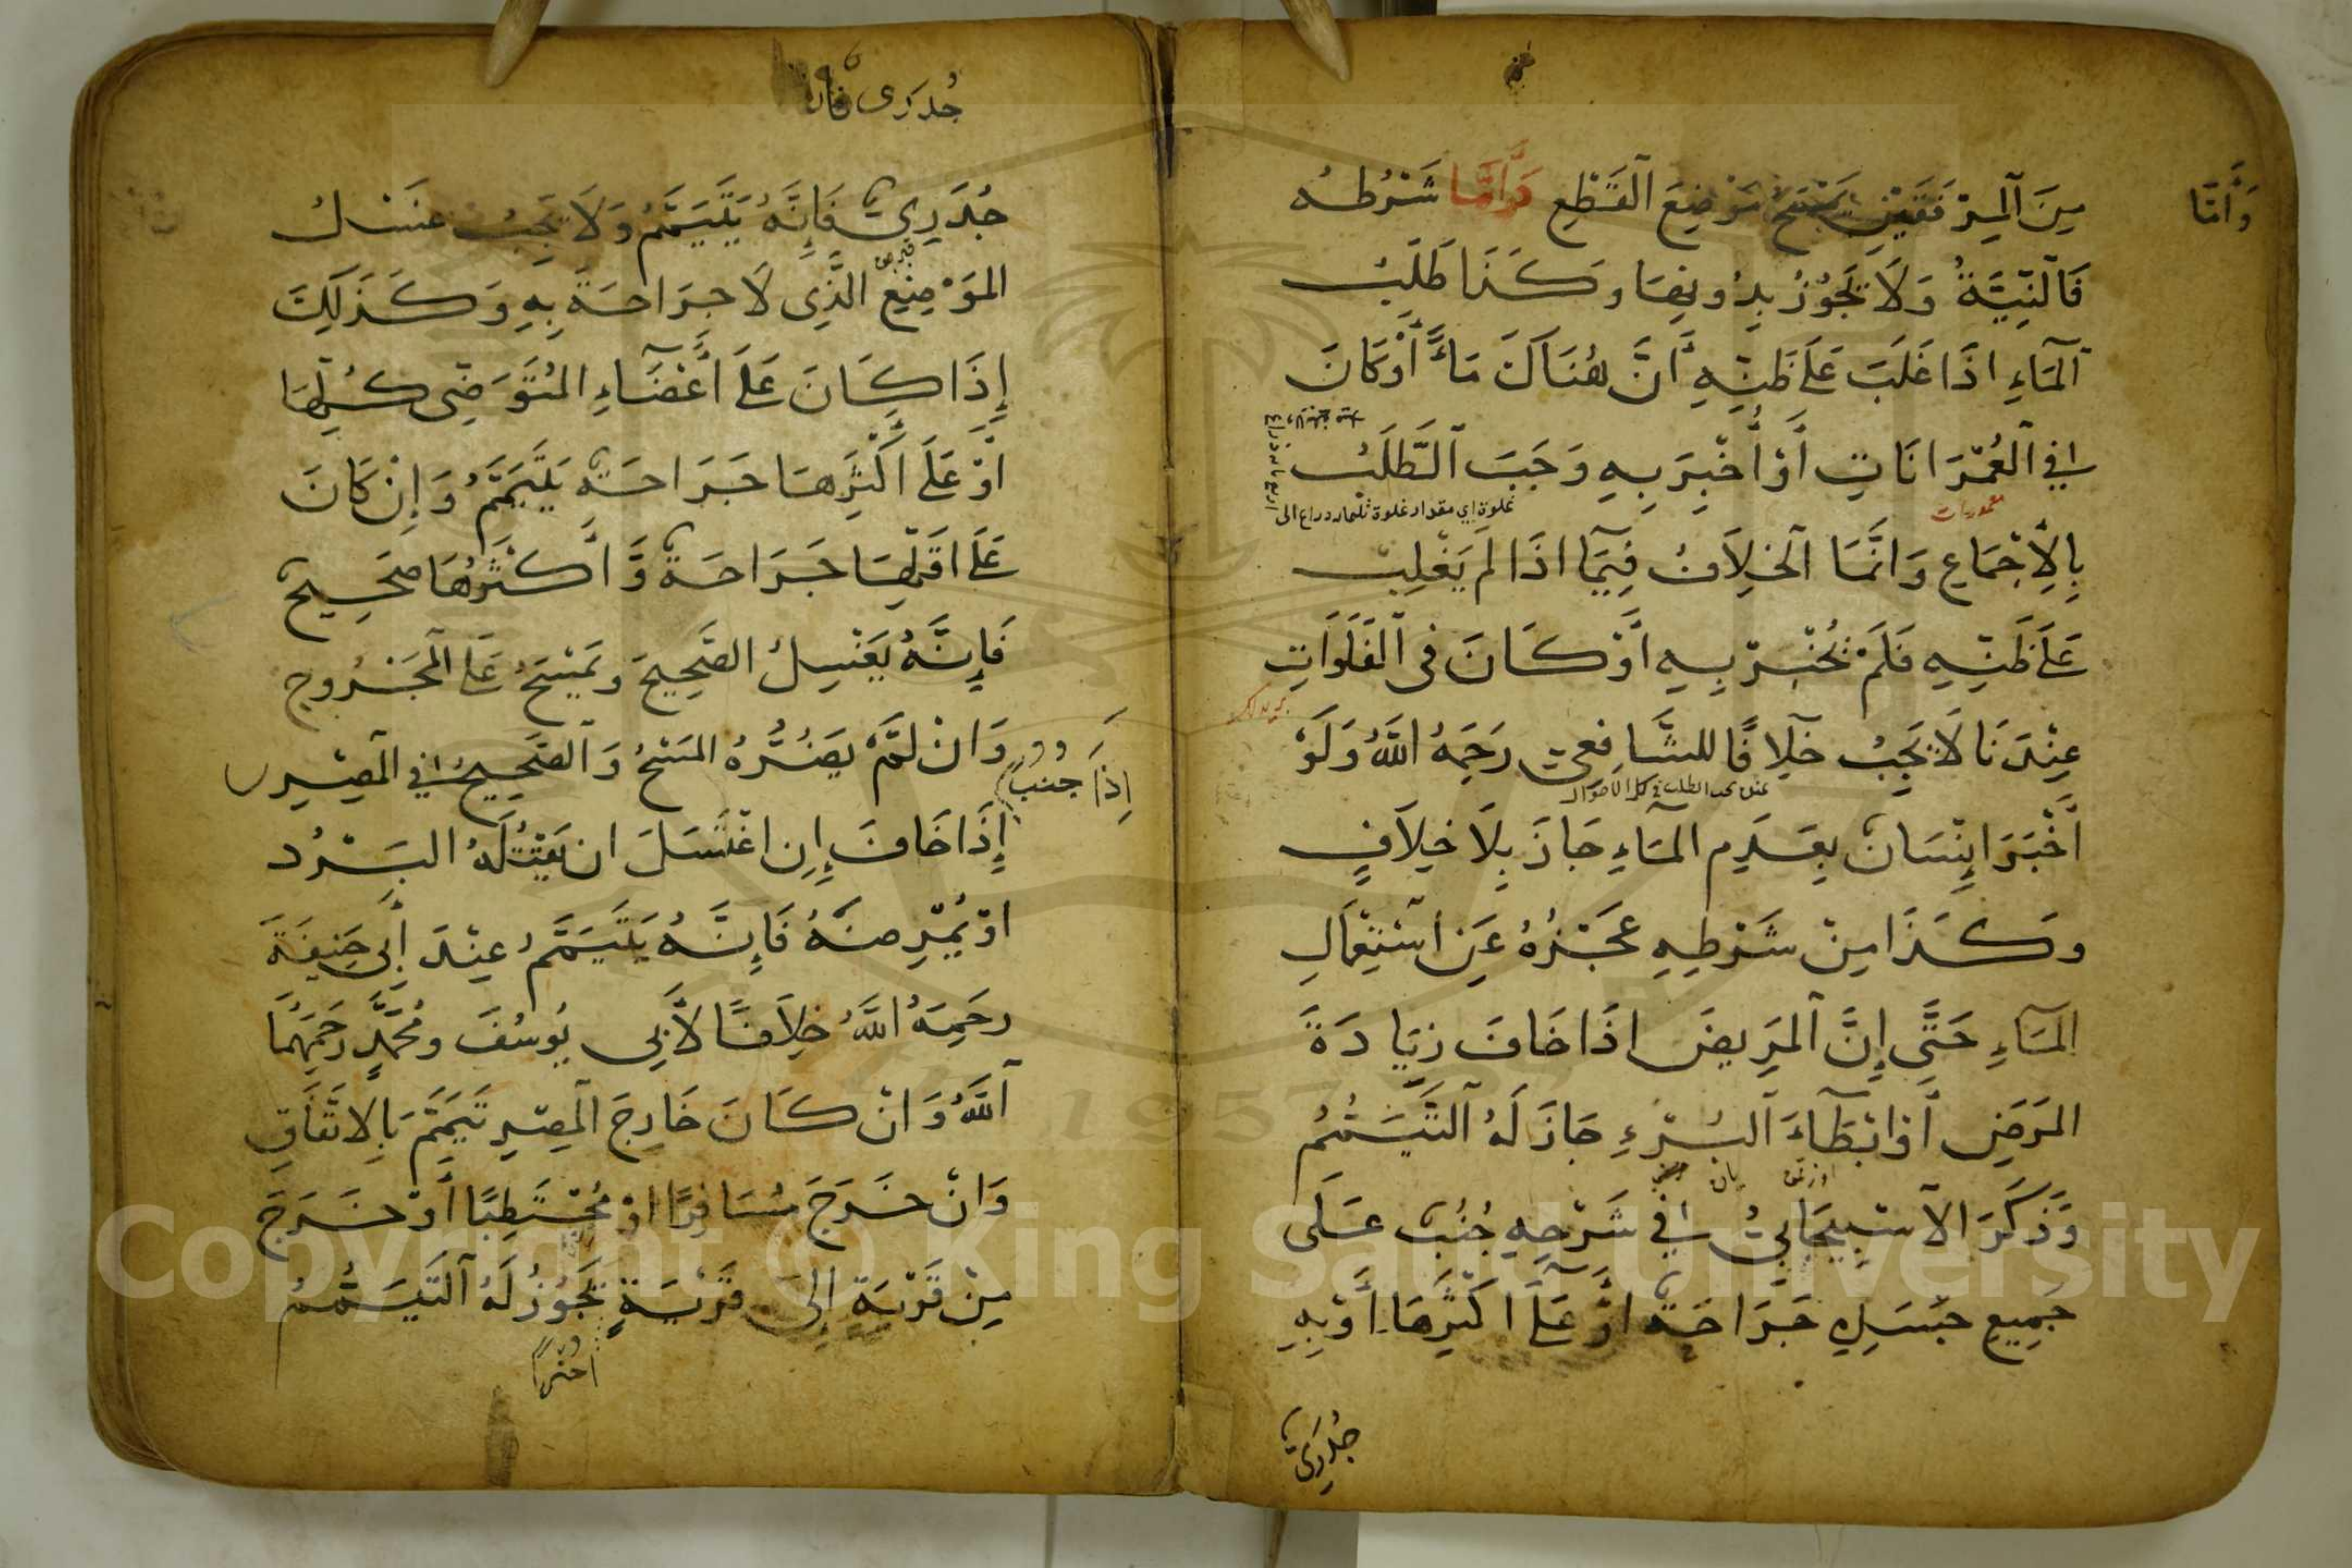 وَأَمَّا
مِنَ الْمِرْفَقَيْنِ يَمْسَحُ مَوْضِعَ الْقَطْعِ وَأَمَّا شَرْطُهُ
فَالنِّيَّةُ وَلَا تَجُوْزُ بِدُونِهَا وَكَذَا طَلَبُ
الْمَاءِ اذَا غَلَبَ عَلَى ظَنِّهِ أَنَّ هُنَاكَ مَاءً أَوْ كَانَ
فِي الْعُمْرَانَاتِ أَوْ أُخْبِرَ بِهِ وَجَبَ الطَّلَبُ
معمورات
غلوة اي مقدار غلوة ثلثمائة ذراع الى
بِالْإِجْمَاعِ وَانَّمَا الْخِلَافُ فِيمَا اذَا لَمْ يَغْلِبْ
عَلَى ظَنِّهِ فَلَمْ يُخْبَرْ بِهِ أَوْ كَانَ فِى الْفَلَوَاتِ
عِنْدَنَا لَا يَجِبُ خِلَافًا للشَّافِعِيّ رَحِمَهُ اللَّهُ وَلَوْ
عنده يجب الطلب في كل الاحوال
أَخْبَرَ إِنْسَانٌ بِعَدَمِ الْمَاءِ جَازَ بِلَا خِلَافٍ
وَكَذَا مِنْ شَرْطِهِ عَجْزُهُ عَنِ اسْتِعْمَالِ
الْمَاءِ حَتَّى إِنَّ الْمَرِيضَ اذَا خَافَ زِيَادَةَ
الْمَرَضِ أَوْ ابْطَاءَ الْبُرْءِ جَازَ لَهُ التَّيَمُّمُ
وَذَكَرَ الْاسْبِيجَابِيُّ فِي شَرْحِهِ جُنُبٌ عَلَى
جَمِيعِ جَسَدِهِ جَرَاحَةٌ اوْ عَلَى اكْثَرِهَا أَوْ بِهِ
جُدَرِيٌّ
جُدَرِى فان
جُدَرِيٌّ فَإِنَّهُ يَتَيَمَّمُ وَلَا يَجِبُ غَسْلُ
الْمَوْضِعِ الَّذِى لَا جَرَاحَةَ بِهِ وَكَذَلِكَ
إِذَا كَانَ عَلَى أَعْضَاءِ الْمُتَوَضِّى كُلِّهَا
اوْ عَلَى اكْثَرِهَا جَرَاحَةٌ يَتَيَمَّمُ وَإِنْ كَانَ
عَلَى اقَلِّهَا جَرَاحَةٌ وَأَكْثَرُهَا صَحِيحٌ
فَإِنَّهُ يَغْسِلُ الصَّحِيحَ وَيَمْسَحُ عَلَى الْمَجْرُوحِ
وَانْ لَمْ يَضُرُّهُ الْمَسْحُ وَالصَّحِيحُ فِي الْمِصْرِ
إِذَا جُنُبٌ
إِذَا خَافَ إِنِ اغْتَسَلَ ان يَقْتُلَهُ الْبَرْدُ
اوْ يُمْرِضَهُ فَإِنَّهُ يَتَيَمَّمُ عِنْدَ أَبِى حَنِيفَةَ
رَحِمَهُ اللَّهُ خِلَافًا لِأَبِى يُوسُفَ وَمُحَمَّدٍ رَحِمَهُمَا
اللَّهُ وَانْ كَانَ خَارِجَ الْمِصْرِ تَيَمَّمَ بِالِاتِّفَاقِ
وَانْ خَرَجَ مُسَافِرًا اوْ مُحْتَطِبًا أَوْ خَرَجَ
مِنْ قَرْيَةٍ إِلَى قَرْيَةٍ يَجُوزُ لَهُ التَّيَمُّمُ
Copyright © King Saud University
1957